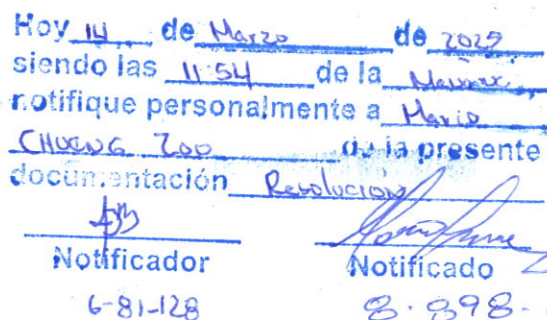 Hoy 14 de Marzo de 2025
siendo las 11:54 de la
notifique personalmente a Mario
CHUENG Zoo de la presente
documentación Resolución
Notificador Notificado
6-81-128 8-898-